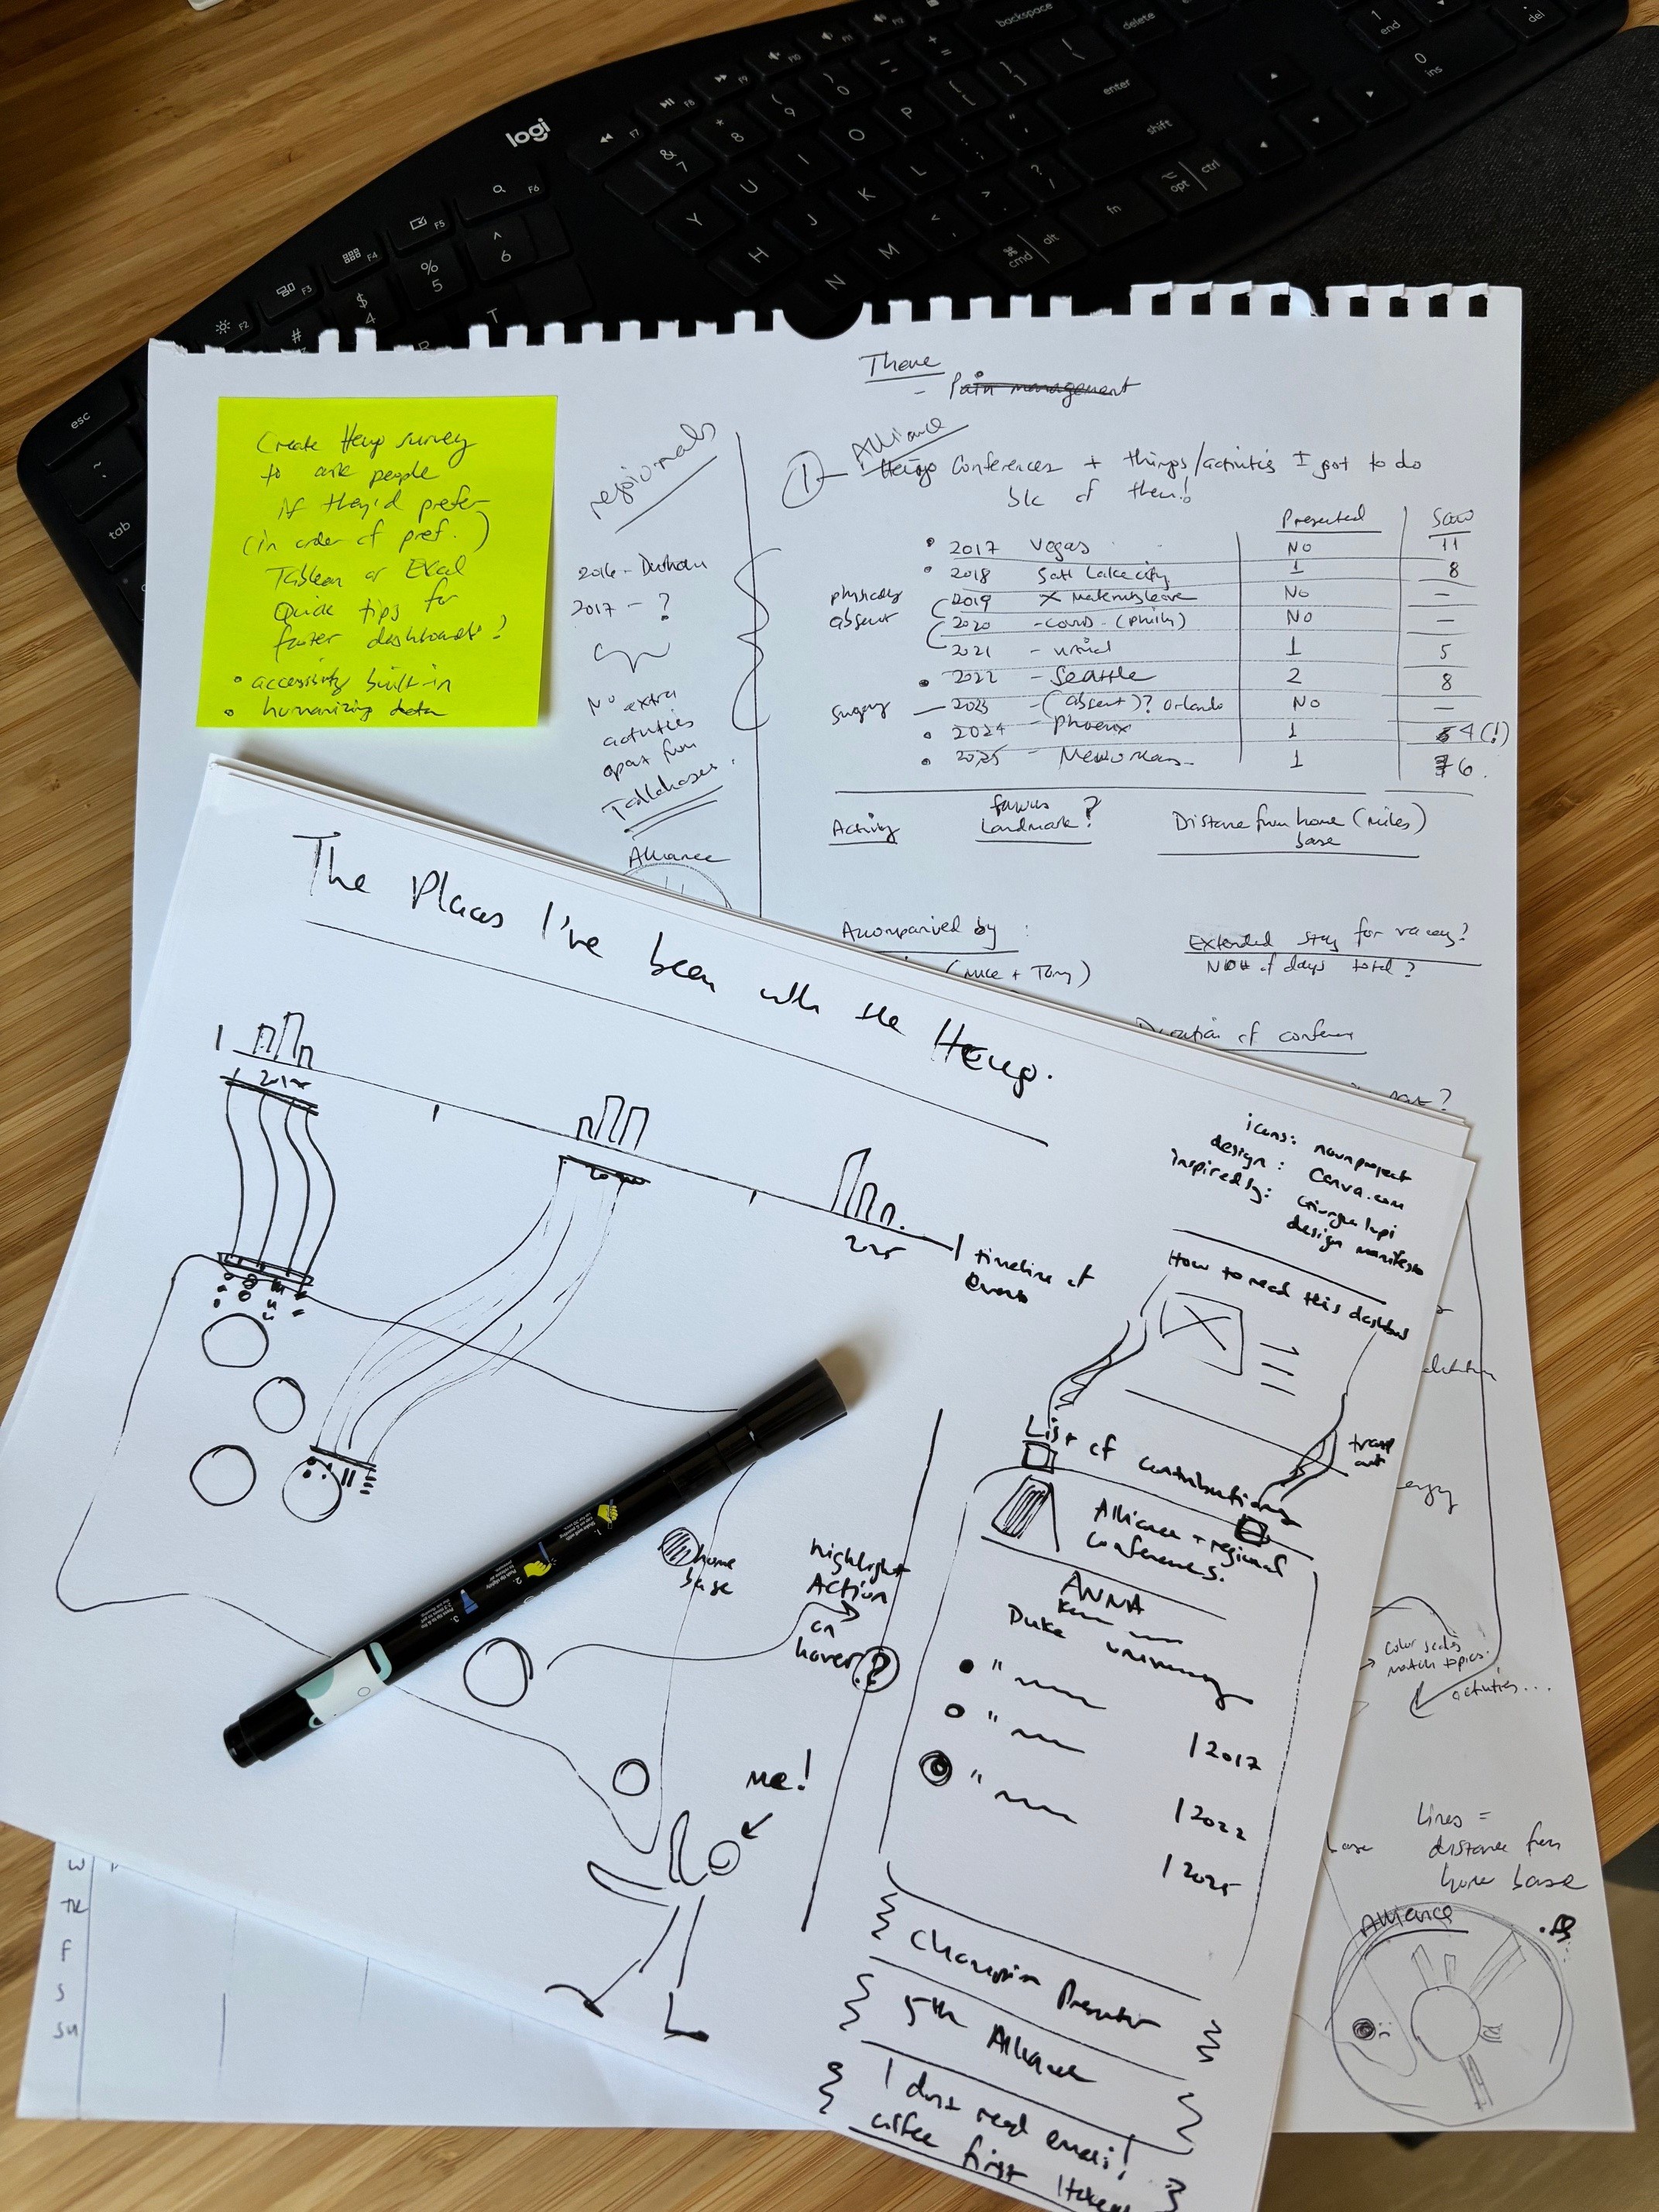 logi
backspace
delete
enter
shift
opt
ctrl
fn
cmd
alt
end
ins
del
esc
tab
F2
F3
F4
F5
F6
F7
F8
F9
F10
Y U I O P
H J K L
N M
T
Theme
- Pain management
Create Heug survey
to ask people
if they'd prefer
(in order of pref.)
Tableau or Excel
Quick tips for
faster dashboards?
• accessibility built-in
• humanizing data
regionals
2016 - Durham
2017 - ?
No extra
activities
apart from
Tallahassee.
Alliance
1
Alliance
Heug Conferences + things/activities I got to do
b/c of them!
Presented
Saw
• 2017 Vegas No 11
• 2018 Salt Lake city 1 8
physically
absent
2019 X maternity leave No –
2020 - covid - (philly) No –
2021 - virtual 1 5
• 2022 - Seattle 2 8
surgery — 2023 - (absent)? Orlando No –
• 2024 - Phoenix 1 4(!)
• 2025 - New Orleans - 1 6.
Activity
famous
Landmark?
Distance from home (miles)
base
Accompanied by :
(Mike + Tony)
Extended stay for vacay?
No # of days total?
Duration of conference
The Places I've been with the Heug.
2025
timeline of
events
icons: nounproject
design: Canva.com
inspired by: Giorgia Lupi
design manifesto
How to read this dashboard
List of contributions
Alliance + regional
Conferences.
ANNA
Duke university
"
"
"
| 2017
| 2022
| 2025
home
base
Highlight
Action
on
hover?
me!
Champion Presenter
5th Alliance
I don't read email!
coffee first
color scales
match topics.
activities...
Lines =
distance from
home base
Alliance
W
TH
F
S
SU